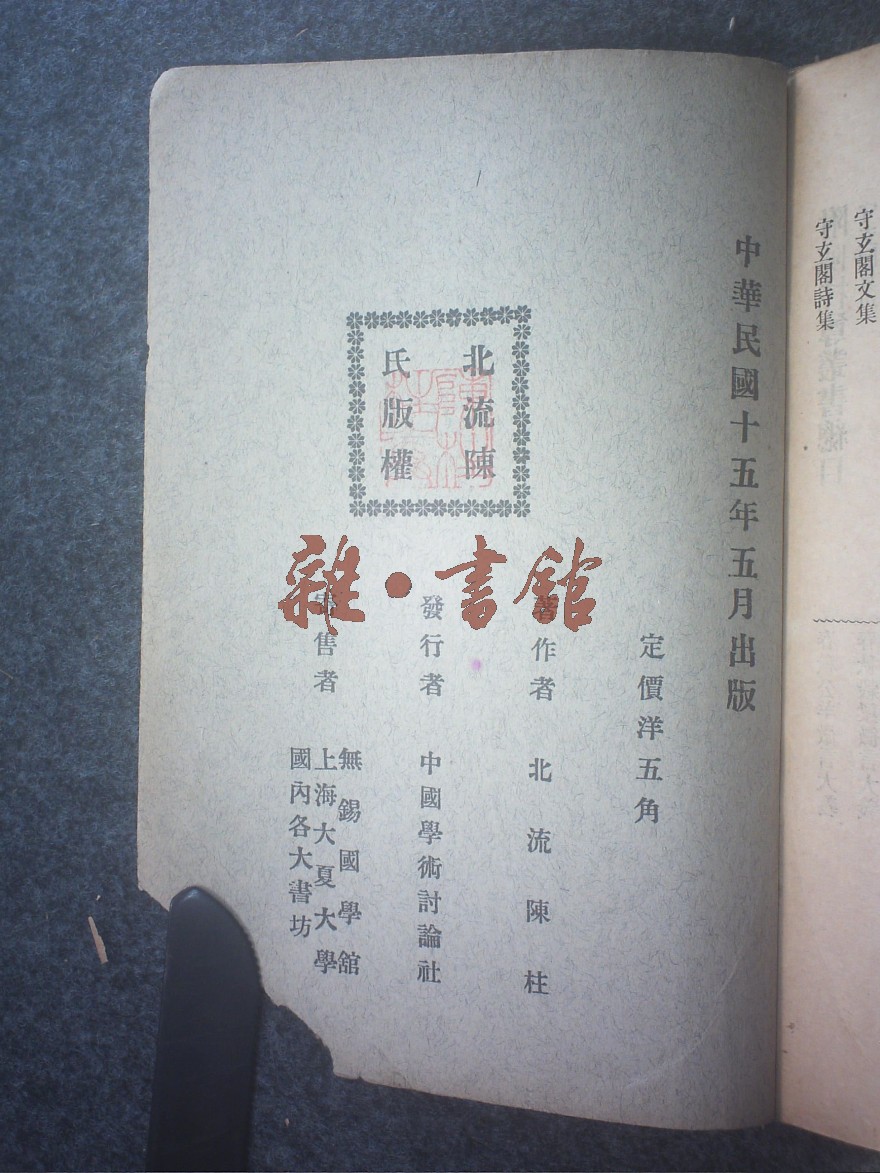 守玄閣文集
守玄閣詩集
中華民國十五年五月出版
定價洋五角
北流陳
氏版權
著作者 北流陳柱
發行者 中國學術討論社
售者 無錫國學館
上海大夏大學
國內各大書坊
雜·書館